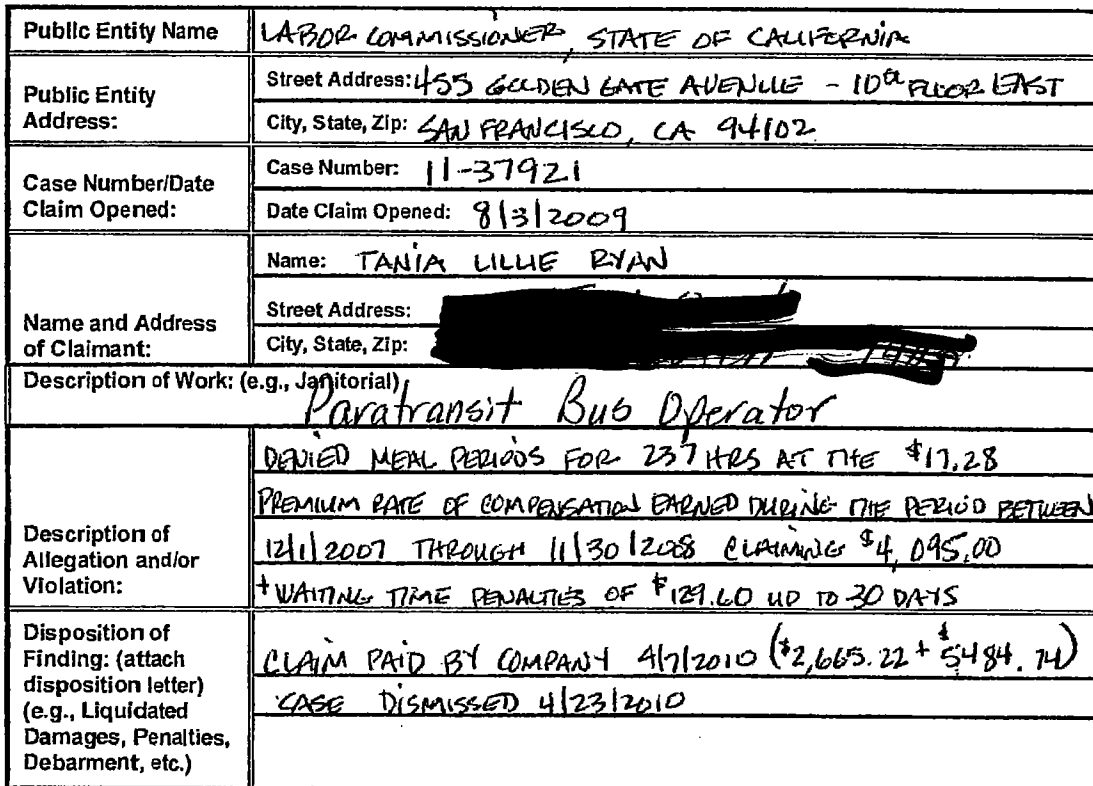 Public Entity Name LABOR COMMISSIONER, STATE OF CALIFORNIA
Public Entity Address: Street Address: 455 GOLDEN GATE AVENUE - 10th FLOOR EAST
City, State, Zip: SAN FRANCISCO, CA 94102
Case Number/Date Claim Opened: Case Number: 11-37921
Date Claim Opened: 8/3/2009
Name and Address of Claimant: Name: TANIA LILLIE RYAN
Street Address:
City, State, Zip:
Description of Work: (e.g., Janitorial) Paratransit Bus Operator
Description of Allegation and/or Violation: DENIED MEAL PERIODS FOR 237 HRS AT THE $17.28
PREMIUM RATE OF COMPENSATION EARNED DURING THE PERIOD BETWEEN
12/1/2007 THROUGH 11/30/2008 CLAIMING $4,095.00
+ WAITING TIME PENALTIES OF $129.60 UP TO 30 DAYS
Disposition of Finding: (attach disposition letter) (e.g., Liquidated Damages, Penalties, Debarment, etc.) CLAIM PAID BY COMPANY 4/7/2010 ($2,665.22 + $5484.74)
CASE DISMISSED 4/23/2010